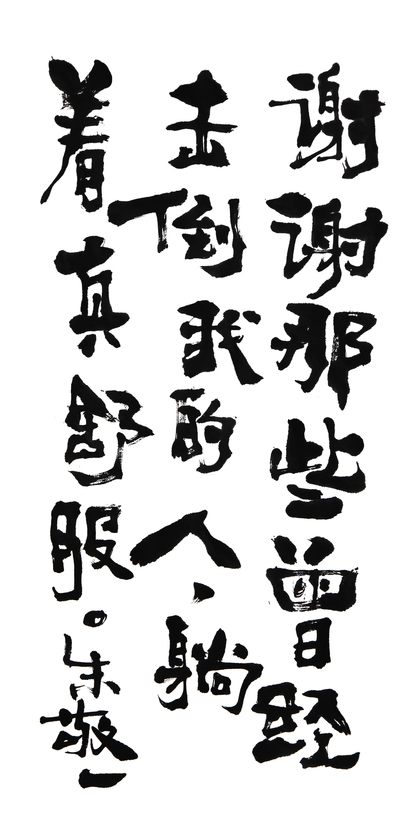 谢谢那些曾经
击倒我的人，躺
着真舒服。朱敬一